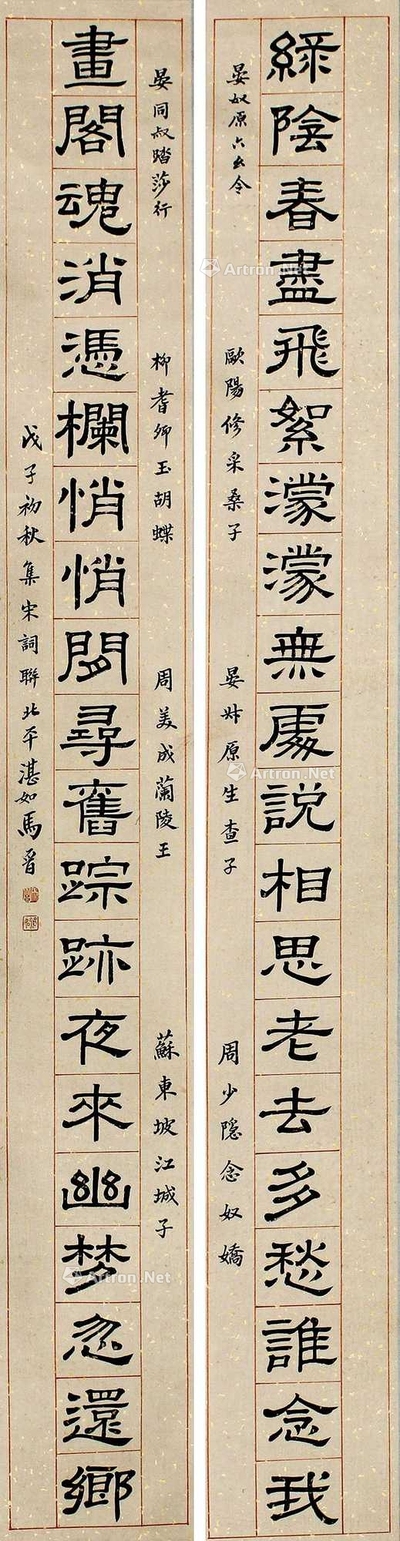 綠陰春盡飛絮濛濛無處説相思老去多愁誰念我
晏叔原六幺令
歐陽修采桑子
晏叔原生查子
周少隐念奴嬌
晏同叔踏莎行
柳耆卿玉胡蝶
周美成蘭陵王
蘇東坡江城子
畫閣魂消憑欄悄悄閒尋舊踪跡夜來幽梦忽還鄉
戊子初秋集宋詞聯北平湛如馬晉
Artron.Net
Artron.Net
Artron.Net
Artron.Net